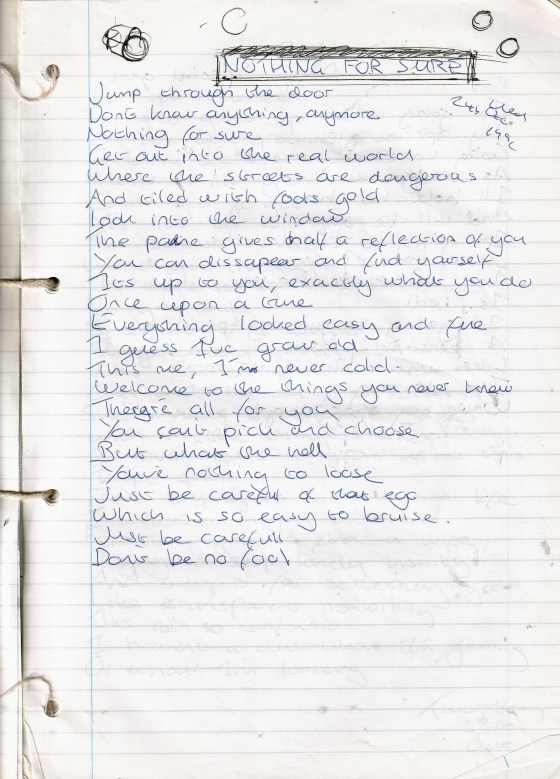 NOTHING FOR SURE
24th Wed
Dec
199
Jump through the door
Dont know anything, anymore
Nothing for sure
Get out into the real world
Where the streets are dangerous
And tiled with fools gold
Look into the window
The pane gives half a reflection of you
You can dissapear and find yourself
It's up to you, exactly what you do
Once upon a time
Everything looked easy and fine
I guess I've grow old
This me, I'm never cold
Welcome to the things you never knew
There're all for you
You can't pick and choose
But what the hell
You've nothing to loose
Just be carefull of that ego
Which is so easy to bruise.
Just be carefull
Don't be no fool